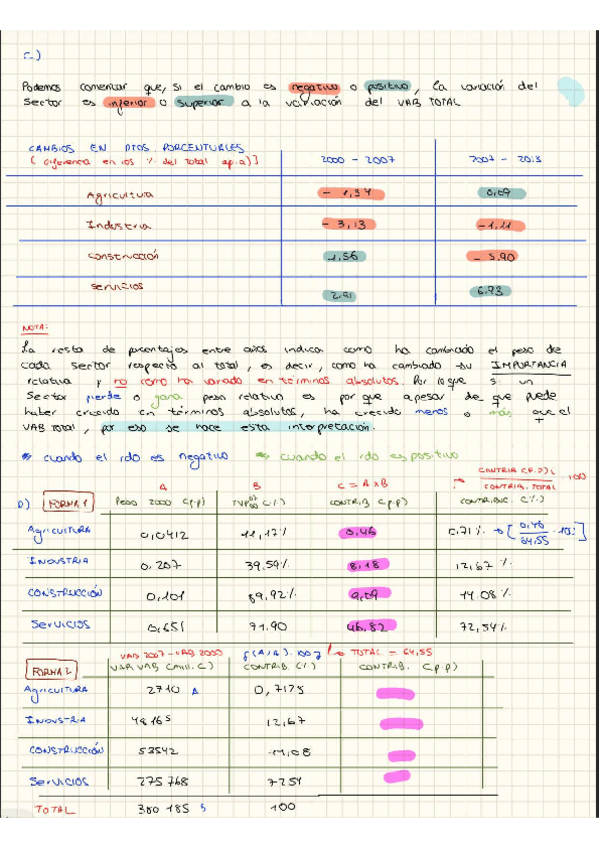 C)
Podemos comentar que, si el cambio es negativo o positivo, la variación del
sector es inferior o superior a la variación del VAB TOTAL
CAMBIOS EN PTOS PORCENTUALES
(diferencia en los % del total ap.a)] 2000 - 2007 2007 - 2013
Agricultura - 1,34 0,09
Industria - 3,13 -1,21
Construcción 1,56 - 5,90
Servicios 2,91 6,93
NOTA:
La resta de porcentajes entre años indica como ha cambiado el peso de
cada sector respecto al total, es decir, como ha cambiado su IMPORTANCIA
relativa y no como ha variado en términos absolutos. Por lo que si un
sector pierde o gana peso relativo es por que apesar de que puede
haber crecido en términos absolutos, ha crecido menos o más que el
VAB total, por eso se hace esta interpretación.
* cuando el rdo es negativo * cuando el rdo es positivo
A B C = A x B CONTRIB (P.P)i / CONTRIB. TOTAL · 100
D) FORMA 1 PESO 2000 (p.p) (%) CONTRIB (p.p) CONTRIBUC. (%)
AGRICULTURA 0,0412 11,17% 0,46 0,71% → [0,46 / 64,55 · 100]
INDUSTRIA 0,207 39,59% 8,18 12,67%
CONSTRUCCIÓN 0,101 89,92% 9,09 14.08%
SERVICIOS 0,651 71.90 46,82 72,54%
VAB 2007 - VAB 2000 TOTAL = 64,55
FORMA 2 VAR VAB (Mill. €) CONTRIB. (%) CONTRIB. (p.p)
AGRICULTURA 2710 A 0,7128
INDUSTRIA 48165 12,67
CONSTRUCCIÓN 53542 14,08
SERVICIOS 275 768 7254
TOTAL 380 185 S 100